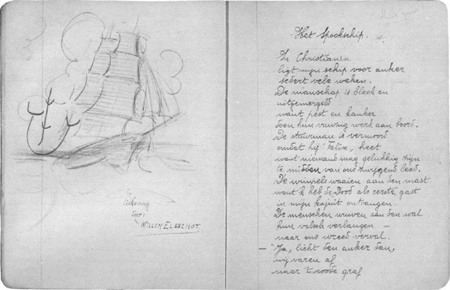 Tekening
door
WILLEM ELSSCHOT
Het Spookschip.
In Christiania
ligt mijn schip voor anker
sedert vele weken.
De manschap is bleek en
uitgemergeld
want pest en kanker
doen hun vuig werk aan boord.
De stuurman is vermoord
omdat hij Felix heet
want niemand mag gelukkig zijn
te midden van ons leed.
De wimpels waaien aan den mast
want ik heb de Dood als eerste gast
in mijn kajuit ontvangen.
De menschen wuiven aan den wal
hun valsch verlangen —
naar ons wreed verval.
— "Ja, licht den anker dan,
wij varen af
naar 't groote graf